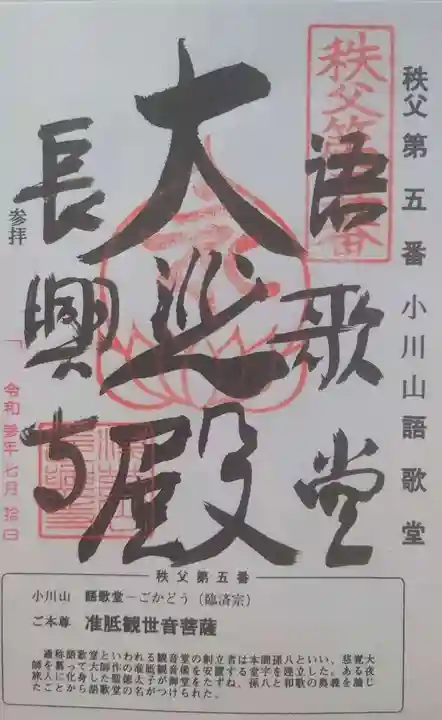 秩父第五番 小川山語歌堂
秩父第五番
語歌堂
大巡殿
長興寺
参拝
令和参年七月拾日
秩父第五番
小川山 語歌堂－ごかどう（臨済宗）
ご本尊 准胝観世音菩薩
通称語歌堂といわれる観音堂の創立者は本間孫八といい、慈覚大
師を慕って大師作の准胝観音像を安置する堂宇を建立した。ある夜
旅人に化身した聖徳太子が御堂をたずね、孫八と和歌の奥義を論じ
たことから語歌堂の名がつけられた。